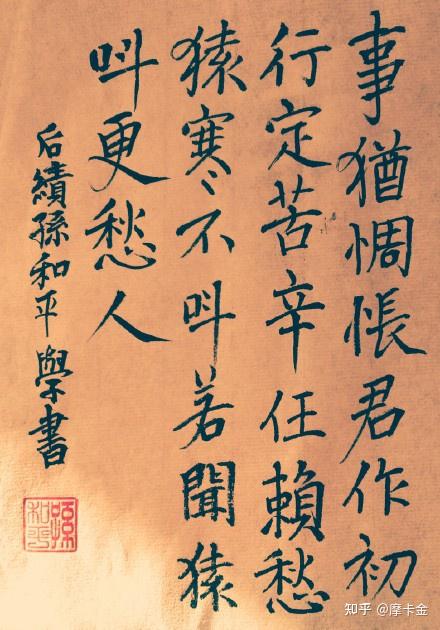 事猶惆悵君作初
行定苦辛任賴愁
猿寒不叫若聞猿
叫更愁人
后績孫和平學書
孫和平
知乎 @摩卡金